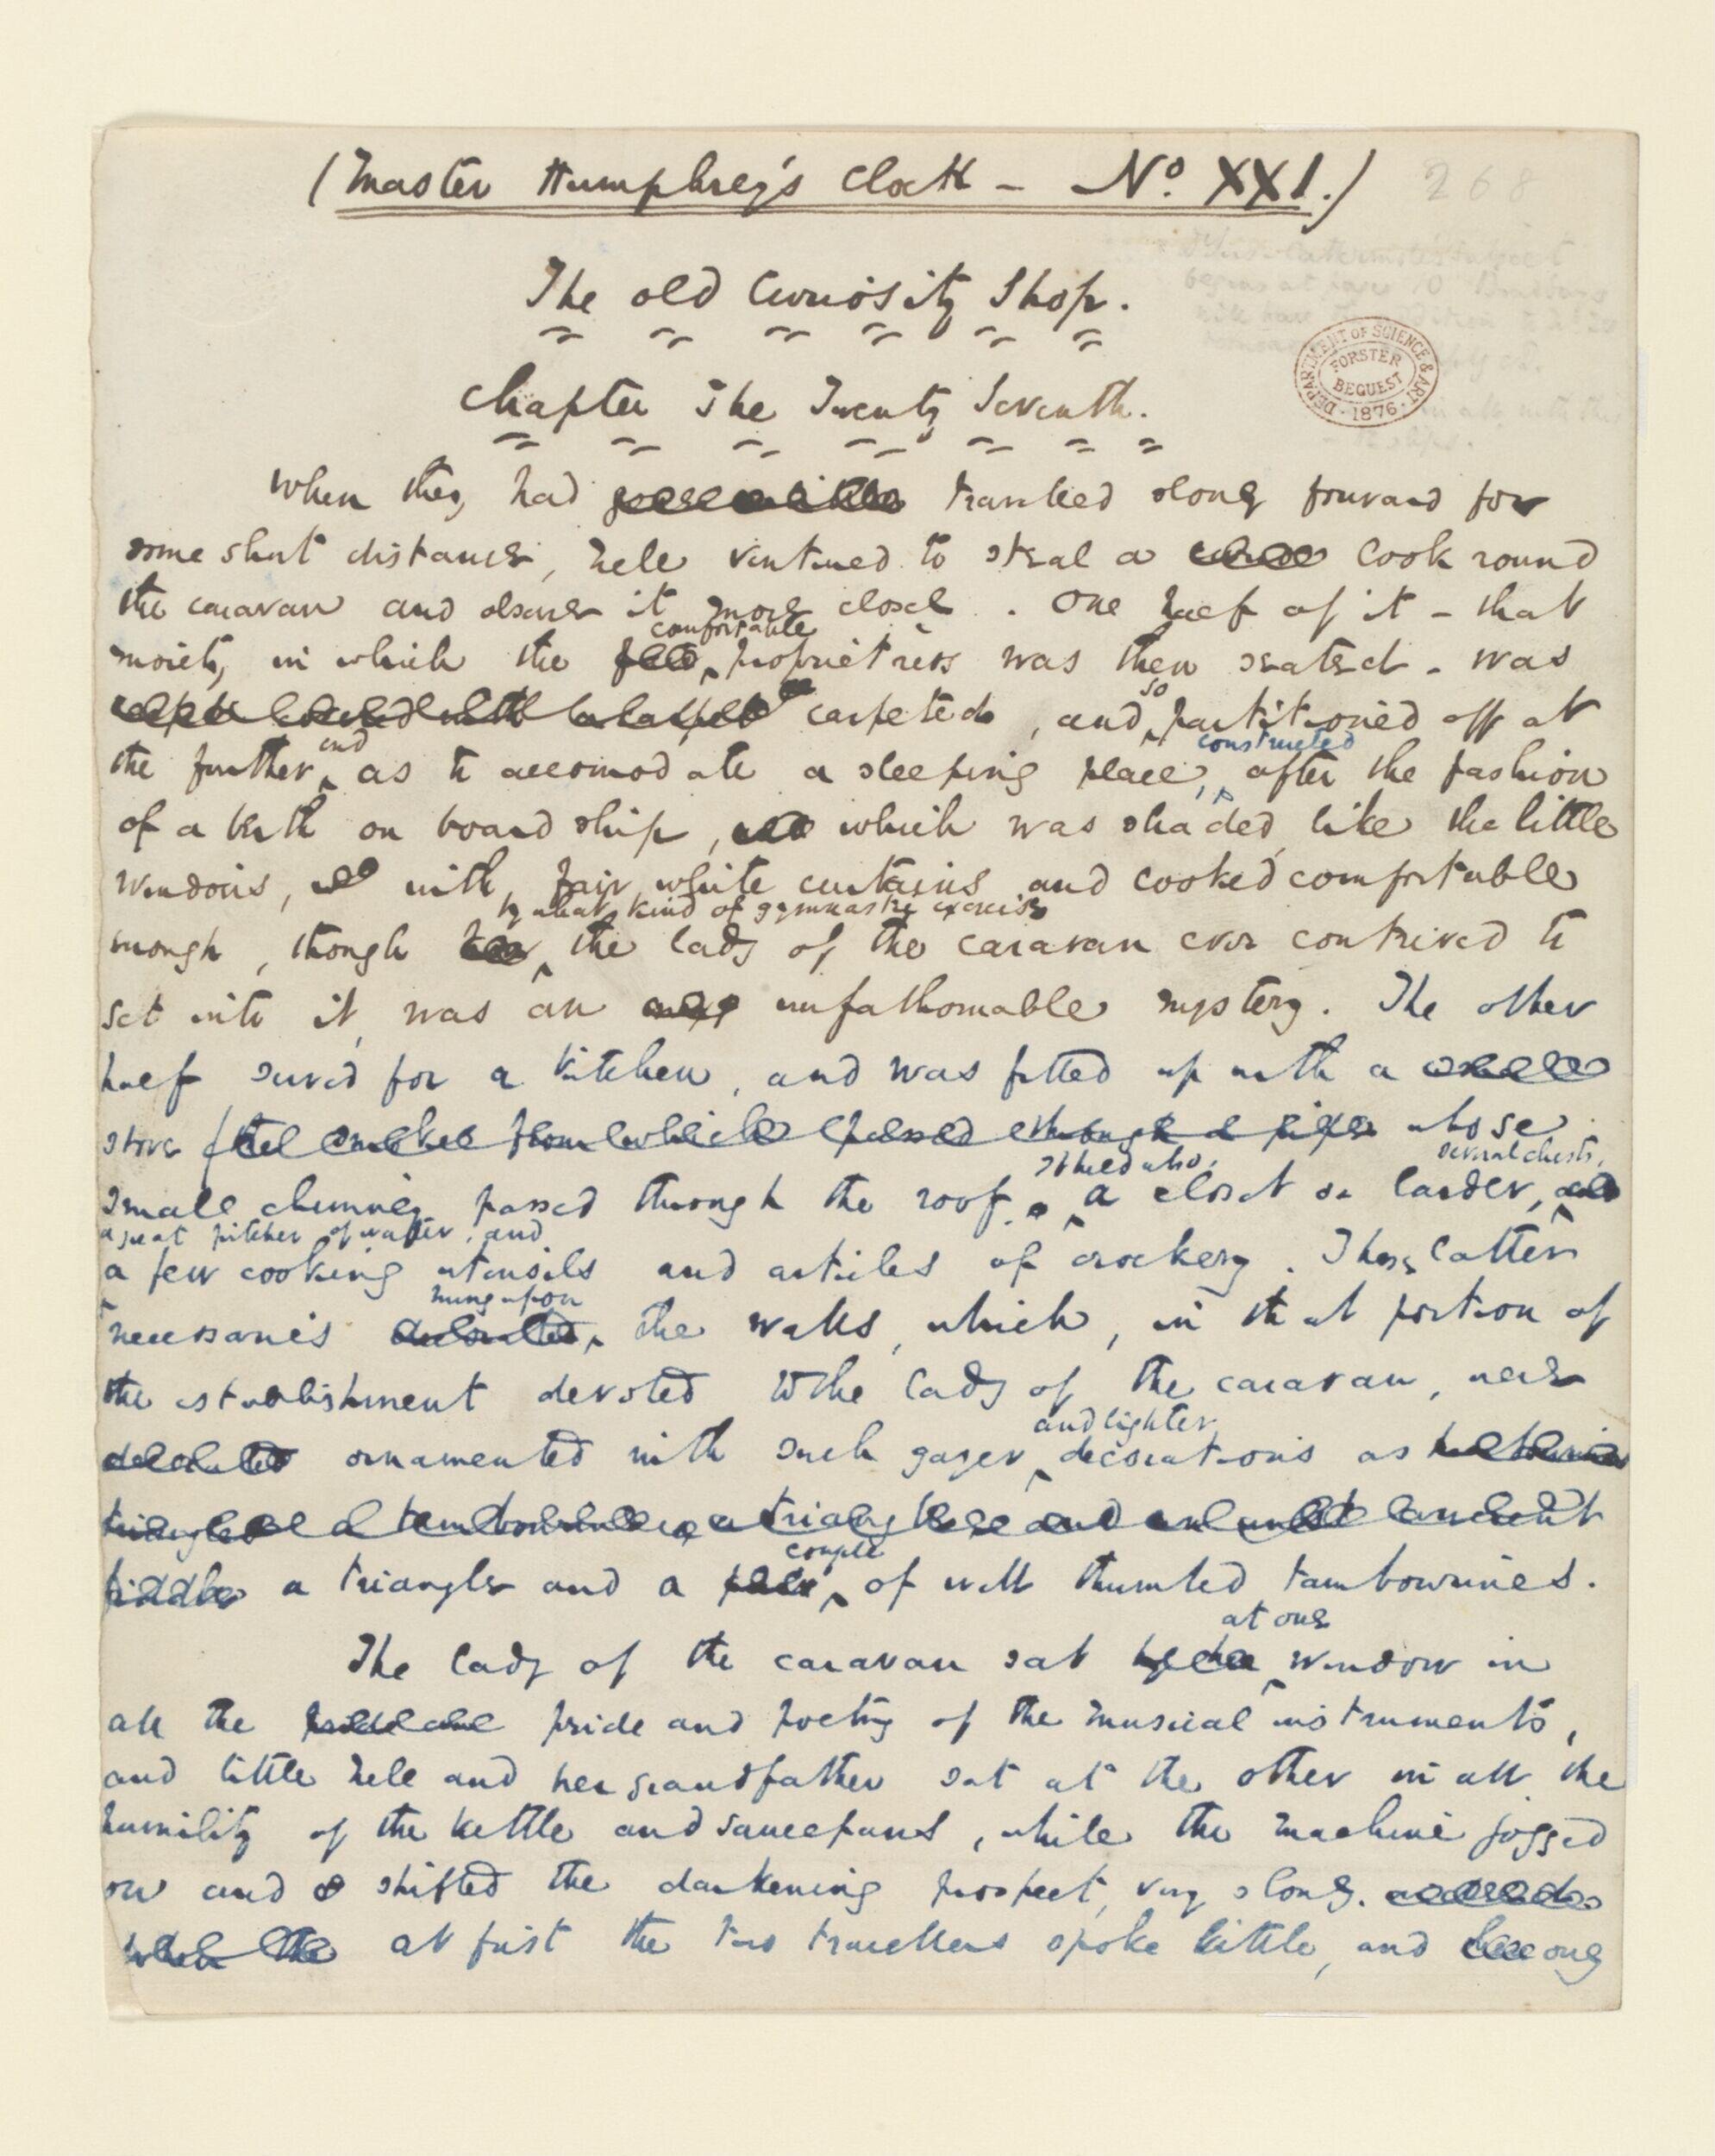 (Master Humphrey's Clock – No. XXI.)
268
The Old Curiosity Shop.
DEPARTMENT OF SCIENCE & ART
FORSTER
BEQUEST
1876
Chapter The Twenty Seventh.
When they had travelled slowly forward for
some short distance, Nell ventured to steal a look round
the caravan and observe it more closely. One half of it – that
comfortable
moiety in which the proprietress was then seated – was
so
carpeted, and partitioned off at
end constructed
the further as to accomodate a sleeping place, after the fashion
of a berth on board ship, which was shaded, like the little
windows, with fair white curtains, and looked comfortable
by what kind of gymnastic exercise
enough, though the lady of the caravan ever contrived to
get into it, was an unfathomable mystery. The other
half served for a kitchen, and was fitted up with a
stove whose
It held also, several chests,
small chimney passed through the roof. a closet or larder,
a great pitcher of water, and
a few cooking utensils and articles of crockery. These latter
hung upon
necessaries the walls, which, in that portion of
the establishment devoted to the lady of the caravan, were
and lighter
ornamented with such gayer decorations as
couple
a triangle and a of well thumbed tambourines.
at one
The lady of the caravan sat window in
all the pride and poetry of the musical instruments,
and little Nell and her grandfather sat at the other in all the
humility of the kettle and saucepans, while the machine jogged
on and shifted the darkening prospect, very slowly.
At first the two travellers spoke little, and only